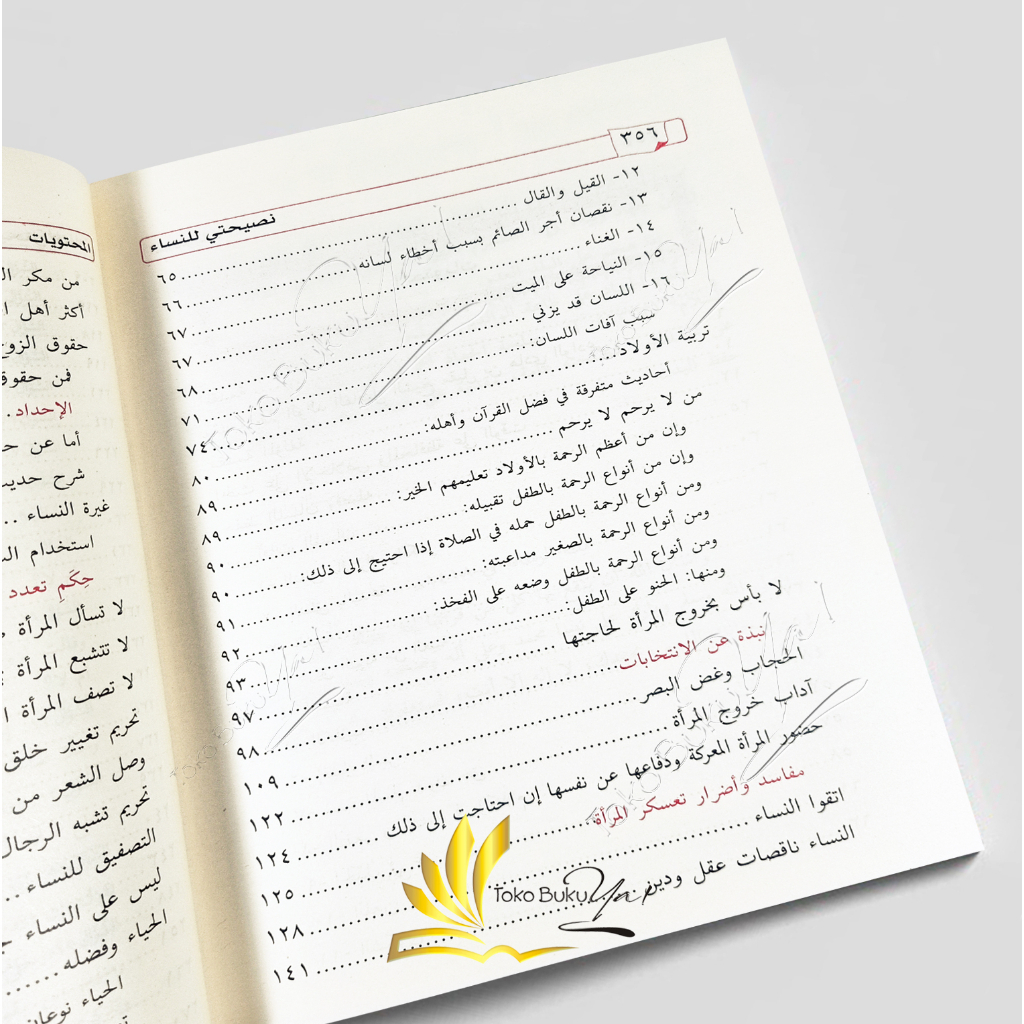 ٣٥٦
نصيحتي للنساء
١٢- القيل والقال ........ ٦٥
١٣- نقصان أجر الصائم بسبب أخطاء لسانه ........ ٦٦
١٤- الغناء ........ ٦٧
١٥- النياحة على الميت ........ ٦٧
١٦- اللسان قد يزني ........ ٦٨
سبب آفات اللسان: ........ ٧١
تربية الأولاد ........ ٧٤
أحاديث متفرقة في فضل القرآن وأهله: ........ ٨٠
من لا يرحم لا يرحم ........ ٨٩
وإن من أعظم الرحمة بالأولاد تعليمهم الخير: ........ ٨٩
وإن من أنواع الرحمة بالطفل تقبيله: ........ ٩٠
ومن أنواع الرحمة بالطفل حمله في الصلاة إذا احتيج إلى ذلك: ........ ٩٠
ومن أنواع الرحمة بالصغير مداعبته: ........ ٩١
ومن أنواع الرحمة بالطفل وضعه على الفخذ: ........ ٩٢
ومنها: الحنو على الطفل: ........ ٩٣
لا بأس بخروج المرأة لحاجتها ........ ٩٧
نبذة عن الانتخابات ........ ٩٨
الحجاب وغض البصر ........ ١٠٩
آداب خروج المرأة ........ ١٢٢
حضور المرأة المعركة ودفاعها عن نفسها إن احتاجت إلى ذلك ........ ١٢٤
مفاسد وأضرار تعسكر المرأة ........ ١٢٥
اتقوا النساء ........ ١٢٨
النساء ناقصات عقل ودين ........ ١٤١
المحتويات
من مكر
أكثر أهل
حقوق الزوج
فمن حقوق
الإحداد .
أما عن
شرح حديث
غيرة النساء ..
استخدام
حِكَم تعدد
لا تسأل المرأة
لا تتشبع المرأة
لا تصف المرأة
تحريم تغيير خلق
وصل الشعر من
تحريم تشبه الرجال
التصفيق للنساء ..
ليس على النساء
الحياء وفضله ......
الحياء نوعان
Toko Buku Yani